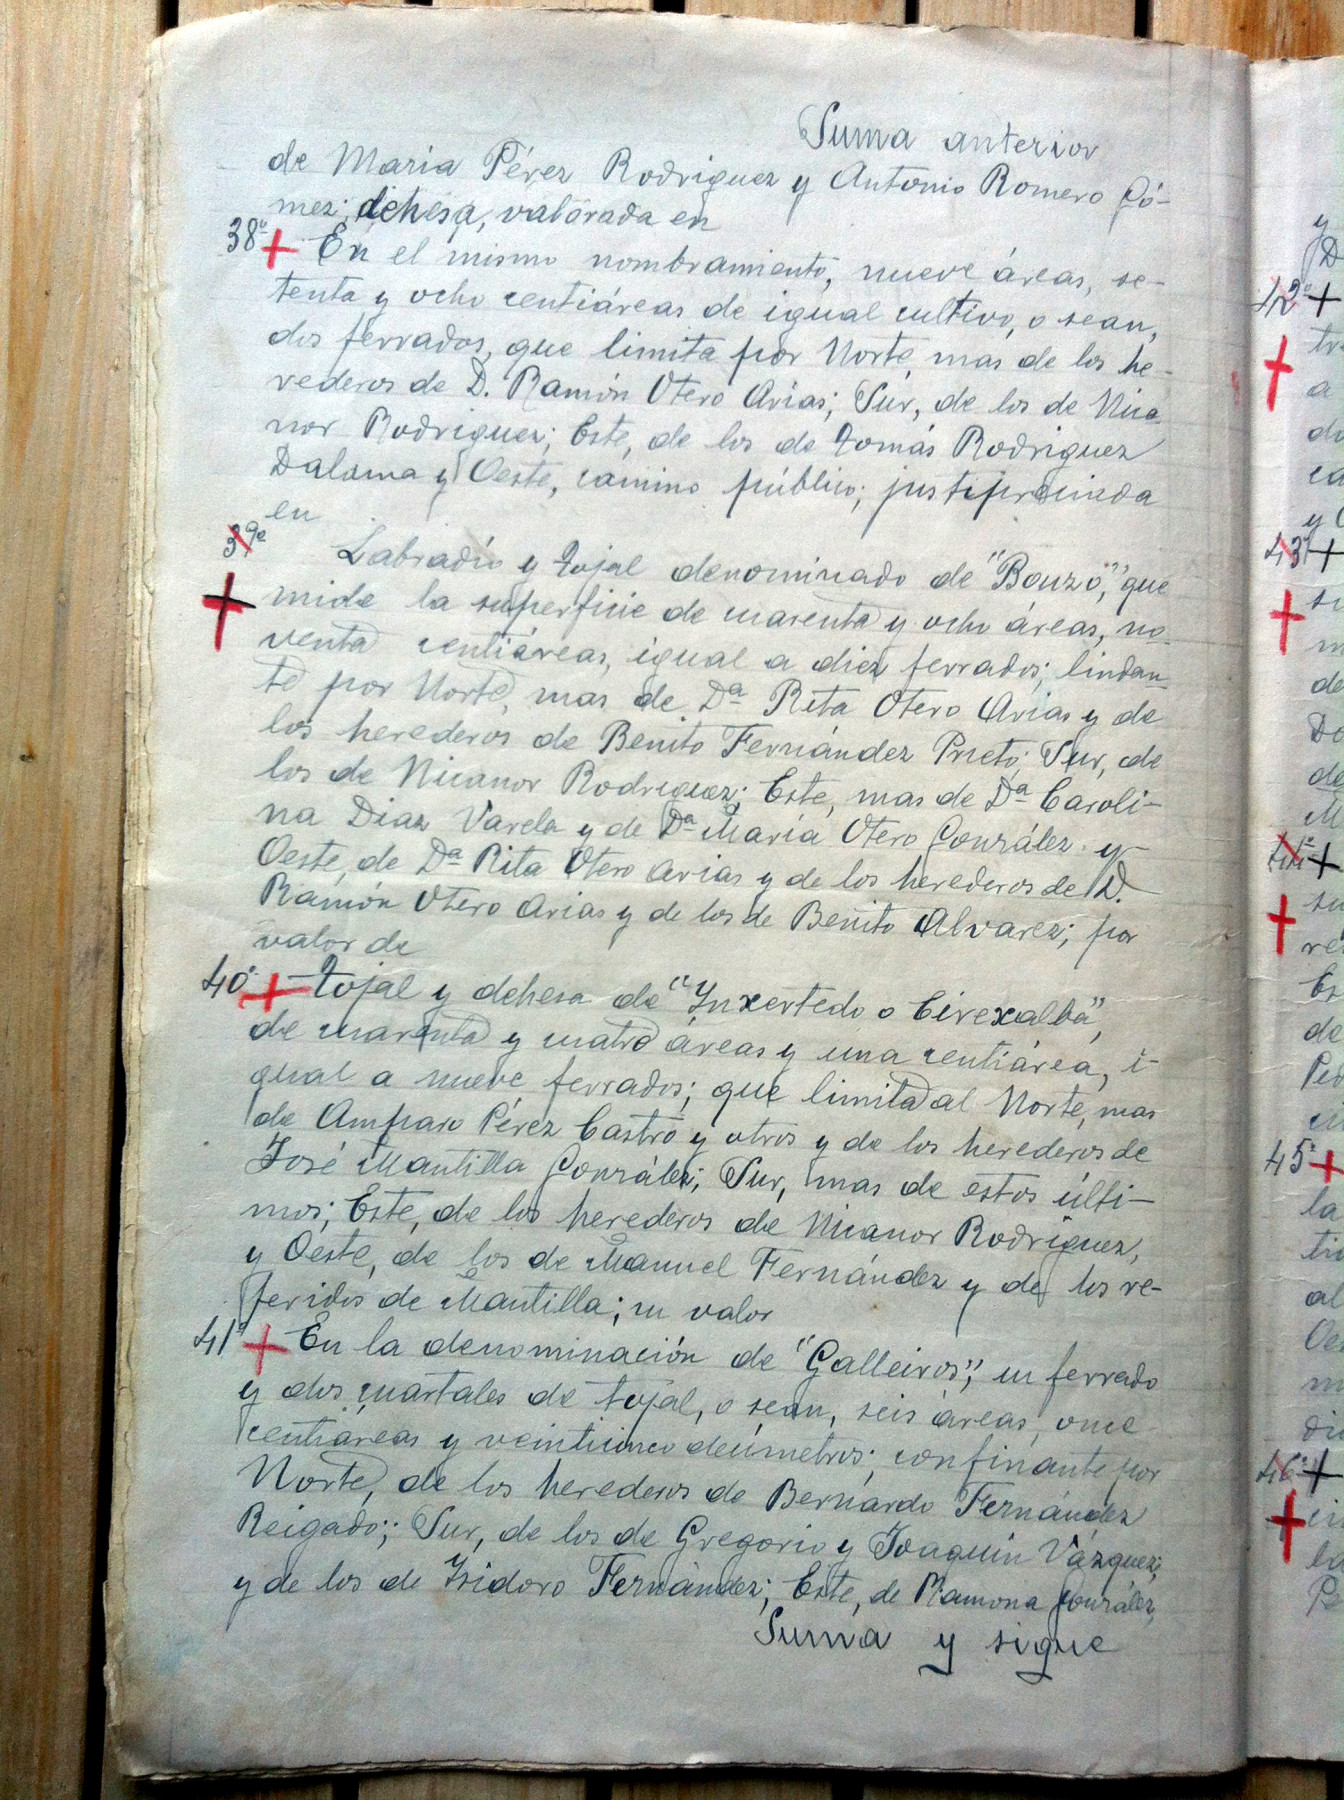 Suma anterior
de Maria Pérez Rodriguez y Antonio Romero Gó-
mez; dehesa, valorada en
38º En el mismo nombramiento, nueve áreas, se-
tenta y ocho centiáreas de igual cultivo, o sean,
dos ferrados, que limita por Norte, mas de los he-
rederos de D. Ramón Otero Arias; Sur, de los de Nica
nor Rodriguez; Este, de los de Tomás Rodriguez
Dalama y Oeste, camino público; justipreciada
en
39º Labradío y tojal denominado de "Bouzo", que
mide la superficie de cuarenta y ocho áreas, no-
venta centiáreas, igual a diez ferrados; lindan-
te por Norte, mas de Dª Rita Otero Arias y de
los herederos de Benito Fernández Prieto; Sur, de
los de Nicanor Rodriguez; Este, mas de Dª Caroli-
na Diaz Varela y de Dª María Otero González y
Oeste, de Dª Rita Otero Arias y de los herederos de D.
Ramón Otero Arias y de los de Benito Alvarez; por
valor de
40º Tojal y dehesa de "Inxertedo o Cirexalba",
de cuarenta y cuatro áreas y una centiárea, i-
gual a nueve ferrados; que limita al Norte, mas
de Amparo Pérez Castro y otros y de los herederos de
José Mantilla González; Sur, mas de estos últi-
mos; Este, de los herederos de Nicanor Rodriguez,
y Oeste, de los de Manuel Fernández y de los re-
feridos de Mantilla; su valor
41º En la denominación de "Galleiros", un ferrado
y dos cuartales de tojal, o sean, seis áreas, once
centiáreas y veinticinco decímetros; confinante por
Norte, de los herederos de Bernardo Fernández
Reigado; Sur, de los de Gregorio y Joaquin Vázquez;
y de los de Isidoro Fernández; Este, de Ramona González,
Suma y sigue
y
D
42º
tr
a
do
ca
y
43º
su
m
de
Do
de
M
44º
su
re
Es
de
Pe
M
45º
la
ti
al
Oes
m
di
46º
P